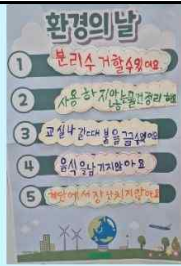 환경의날
1 분리수거할수있어요.
2 사용하지않는물건정리해요
3 교실나갈때불을끌수있어요
4 음식을남기지않아요
5 계단에서장난치지않아요